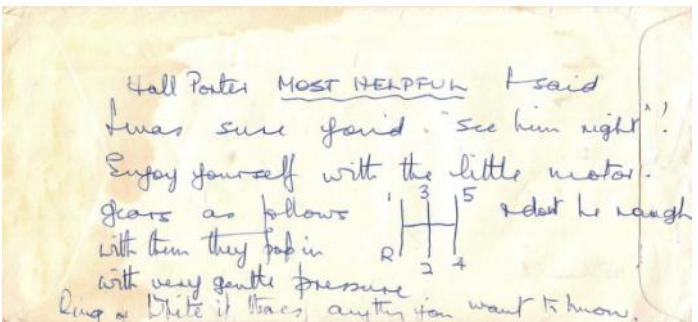 Hall Porter MOST HELPFUL I said
I was sure you'd "see him right"!
Enjoy yourself with the little motor.
gears as follows 1 3 5 & dont be rough
with them they pop in R 2 4
with very gentle pressure
Ring or Write if theres anything you want to know.